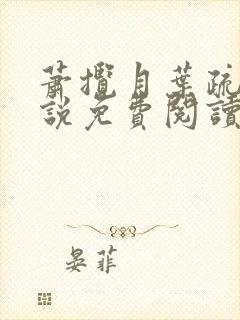 蕭攬月葉疏
說免費閱讀
晏菲